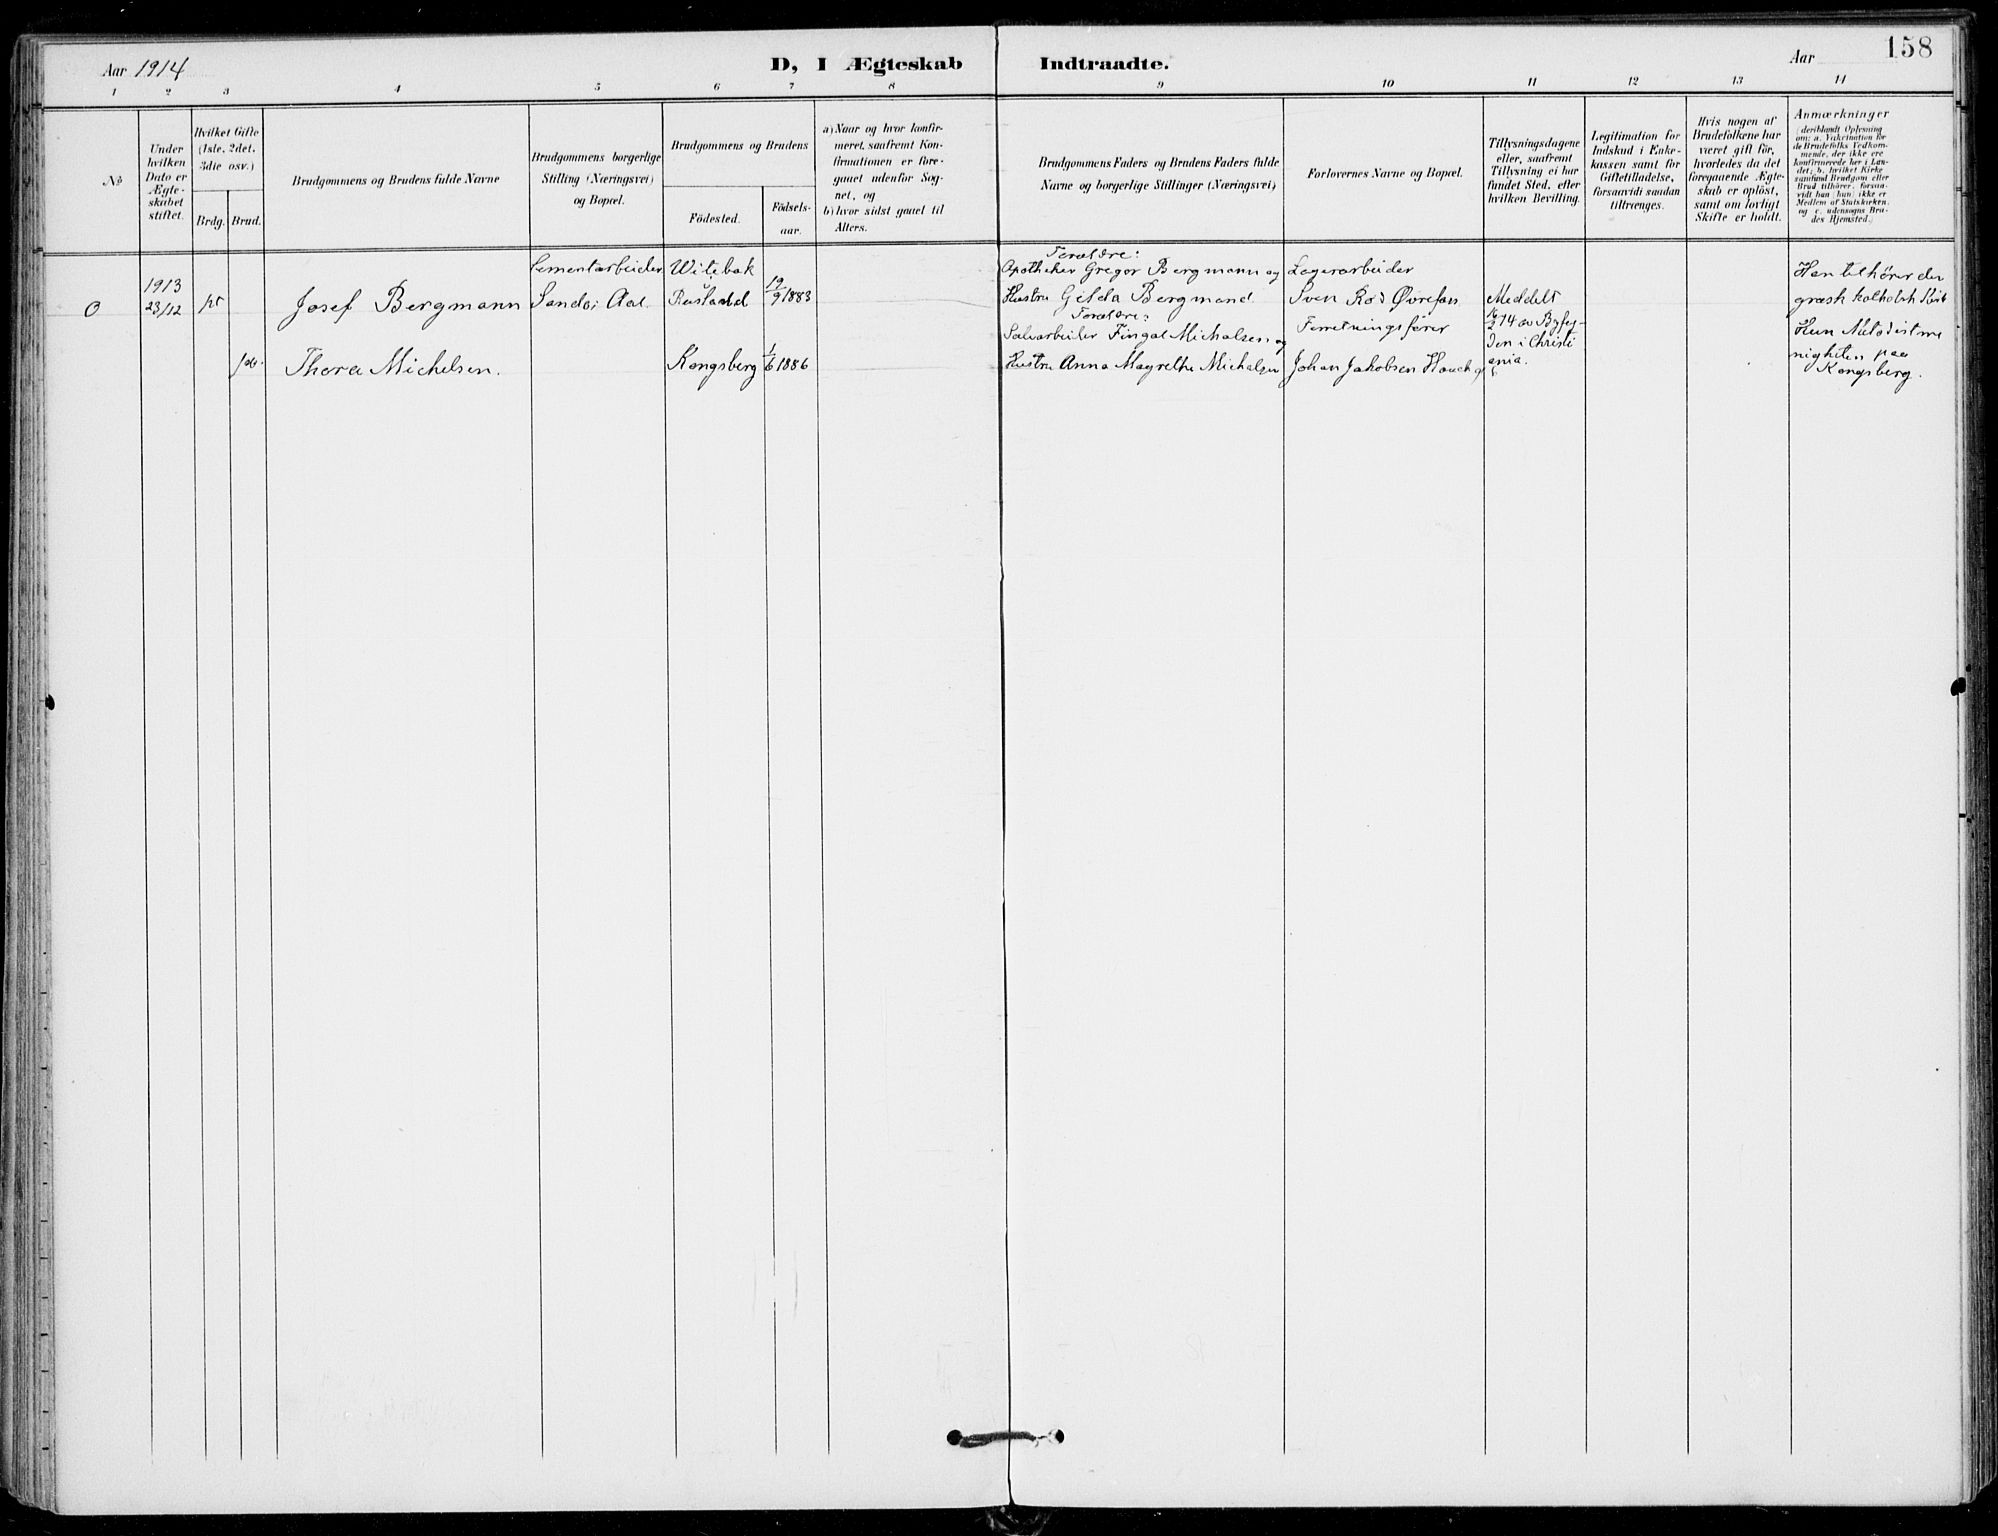 Aar 1914
D, I Ægteskab Indtraadte.
Aar
158
1 2 3 4 5 6 7 8 9 10 11 12 13 14
No
Under
hvilken
Dato er
Ægte-
skabet
stiftet.
Hvilket Gifte
(1ste, 2det,
3die osv.)
Brdg. Brud.
Brudgommens og Brudens fulde Navne
Brudgommens borgerlige
Stilling (Næringsvei)
og Bopæl.
Brudgommens og Brudens
Födested.
Födsels-
aar.
a) Naar og hvor konfir-
meret, saafremt Kon-
firmationen er fore-
gaaet udenfor Sog-
net, og
b) hvor sidst gaaet til
Alters.
Brudgommens Faders og Brudens Faders fulde
Navne og borgerlige Stillinger (Næringsvei)
Forlovernes Navne og Bopæl.
Tillysningsdagene
eller, saafremt
Tillysning ei har
fundet Sted, efter
hvilken Bevilling.
Legitimation for
Indskud i Enke-
kassen samt for
Giftetilladelse,
forsaavidt saadan
tiltrænges.
Hvis nogen af
Brudefolkene har
været gift för,
hvorledes da det
foregaaende Ægte-
skab er oplöst,
samt om lovligt
Skifte er holdt.
Anmærkninger
(deriblandt Oplysning
om: a. Vakcination for
de Brudefolks Vedkom-
mende, der ikke ere
konfirmerede her i Lan-
det; b. hvilket Kirke
samfund Brudgom eller
Brud tilhörer, forsaa-
vidt han (hun) ikke er
Medlem af Statskirken.
og c. udensogns Bru-
des Hjemsted.)
0
1913
23/12
Josef Bergmann
Cementarbeider
Sande i Aal
Witebsk
Rusland
19/9 1883
Forældre:
Apotheker Gregor Bergmann og
Hustru Gilda Bergmand
Lagerarbeider
Sven Rød Øvrefos
Meddelt
16/2 14 av Byfog
den i Christi
ania.
Han tilhører den
græsk katholsk Kirk
Thora Michelsen.
Kongsberg
1/6 1886
Forældre:
Sølvarbeider Fingal Michalsen og
Hustru Anna Magrethe Michalsen
Forretningsfører
Johan Jakobsen
Hun Metodistme
nigheten paa
Kongsberg.